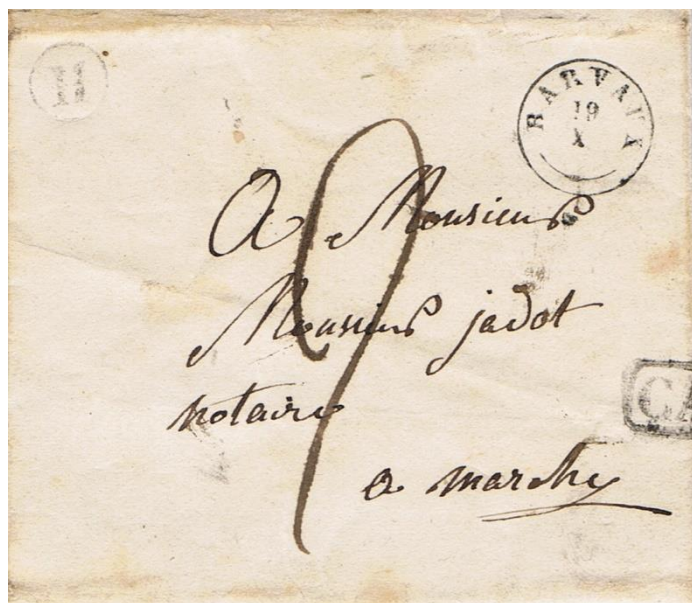 H
BARVAUX
19
X
A Monsieur
Monsieur jadot
notaire
a marche
CA
9